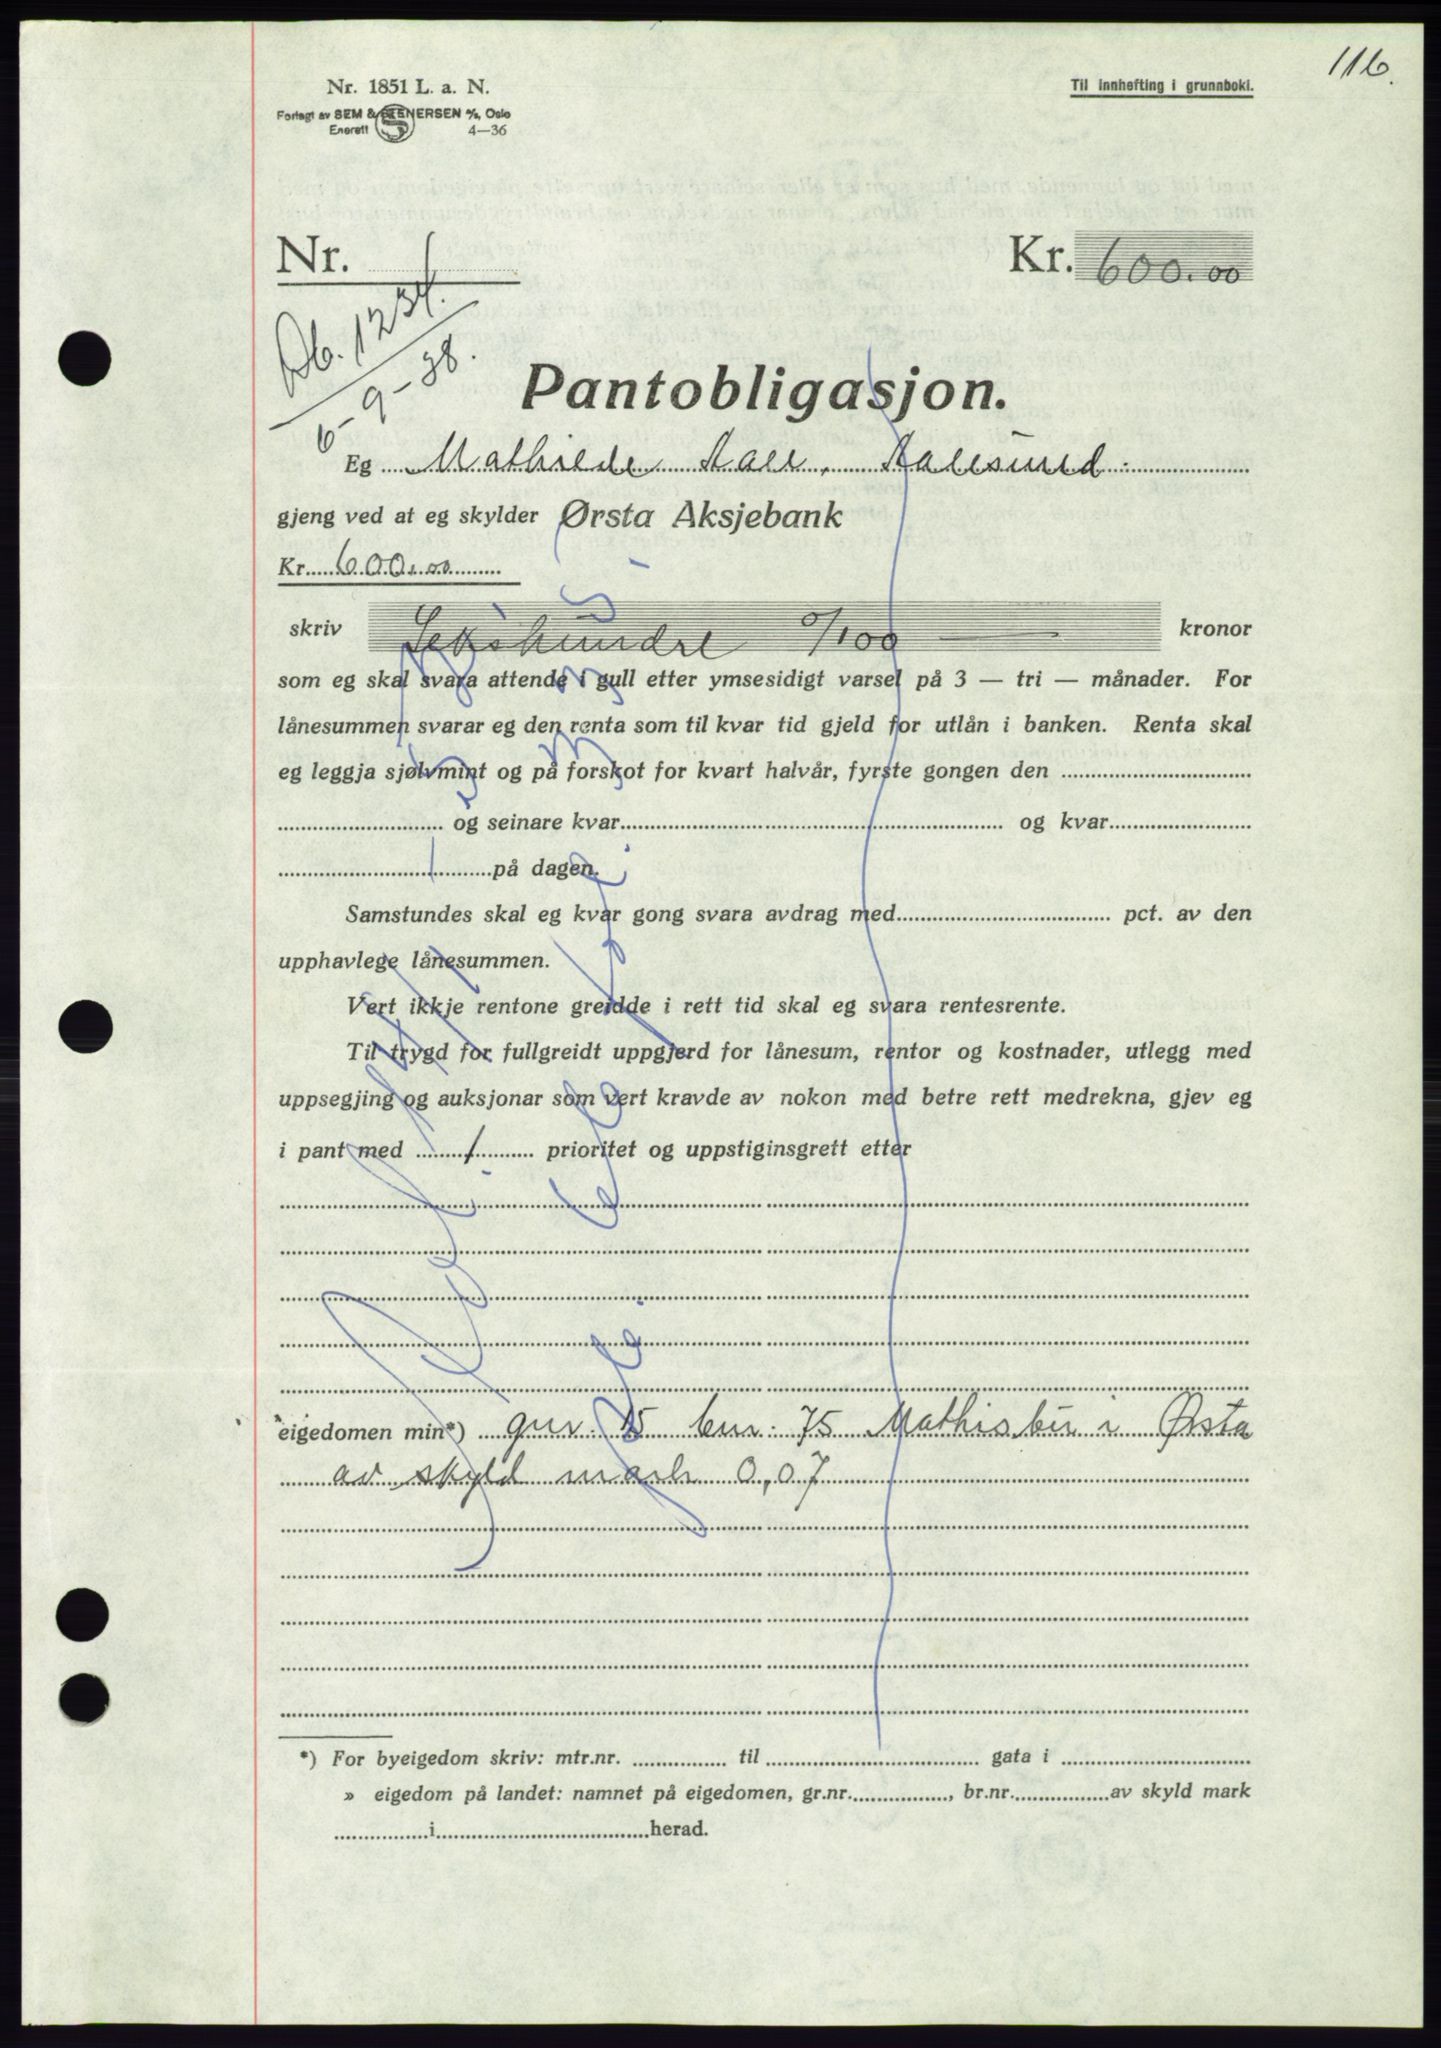 116.
Nr. 1851 L. a. N.
Til innhefting i grunnboki.
Forlagt av SEM & STENERSEN A/S, Oslo
Enerett 4—36
Nr.
Kr. 600.00
Db. 1234.
6-9-38.
Pantobligasjon.
Eg Mathilde Aall, Aalesund.
gjeng ved at eg skylder Ørsta Aksjebank
Kr. 600.00
skriv Sekshundre 0/100 kronor
som eg skal svara attende i gull etter ymsesidigt varsel på 3 — tri — månader. For
lånesummen svarar eg den renta som til kvar tid gjeld for utlån i banken. Renta skal
eg leggja sjølvmint og på forskot for kvart halvår, fyrste gongen den
og seinare kvar og kvar
på dagen.
Samstundes skal eg kvar gong svara avdrag med pct. av den
upphavlege lånesummen.
Vert ikkje rentone greidde i rett tid skal eg svara rentesrente.
Til trygd for fullgreidt uppgjerd for lånesum, rentor og kostnader, utlegg med
uppsegjing og auksjonar som vert kravde av nokon med betre rett medrekna, gjev eg
i pant med 1 prioritet og uppstiginsgrett etter
eigedomen min*) gnr. 15 bnr. 75 Mathisbu i Ørsta
av skyld mark 0,07
*) For byeigedom skriv: mtr.nr. til gata i
» eigedom på landet: namnet på eigedomen, gr.nr. , br.nr. av skyld mark
i herad.